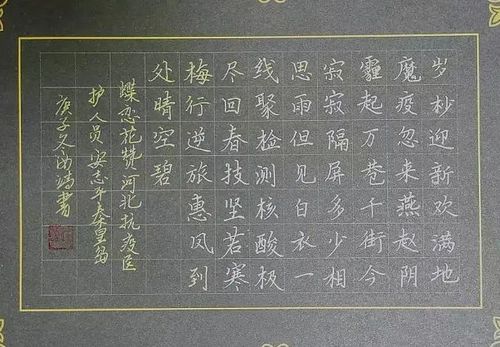 岁杪迎新欢满地
魔疫忽来燕赵阴
霾起万巷千街今
寂寂隔屏多少相
思雨但见白衣一
线聚检测核酸极
尽回春技坚若寒
梅行逆旅惠风到
处晴空碧
蝶恋花赞河北抗疫医
护人员安志 秦皇岛
庚子冬 书